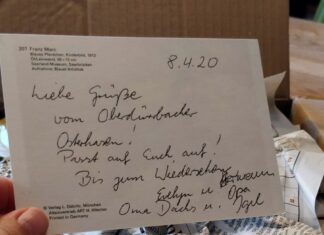 307 Franz Marc
Blaues Pferdchen, Kinderbild, 1912
Saarland-Museum, Saarbrücken
8.4.20
Liebe Grüße
vom Oberdürrbacher
Osterhasen!
Passt auf Euch auf!
Bis zum Wiedersehen,
Evelyn u. Opa
Oma Dachs u. Igel
© Verlag L. Däbritz, München
Printed in Germany